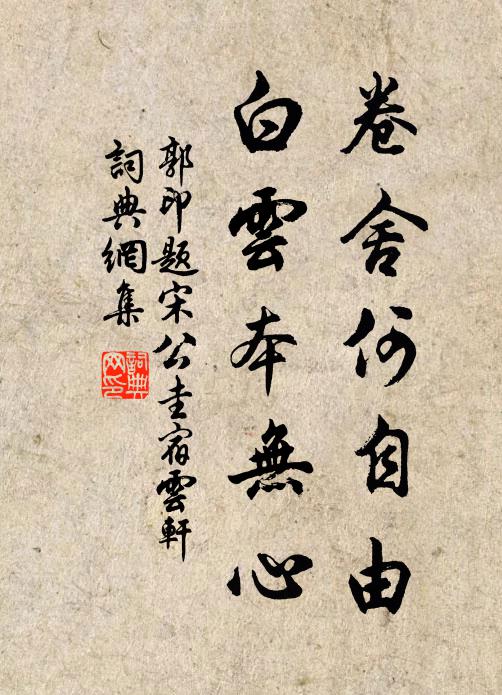 卷舍何自由
白雲本無心
郭印題宋公圭宿雲軒
詞典網集
詞典網印